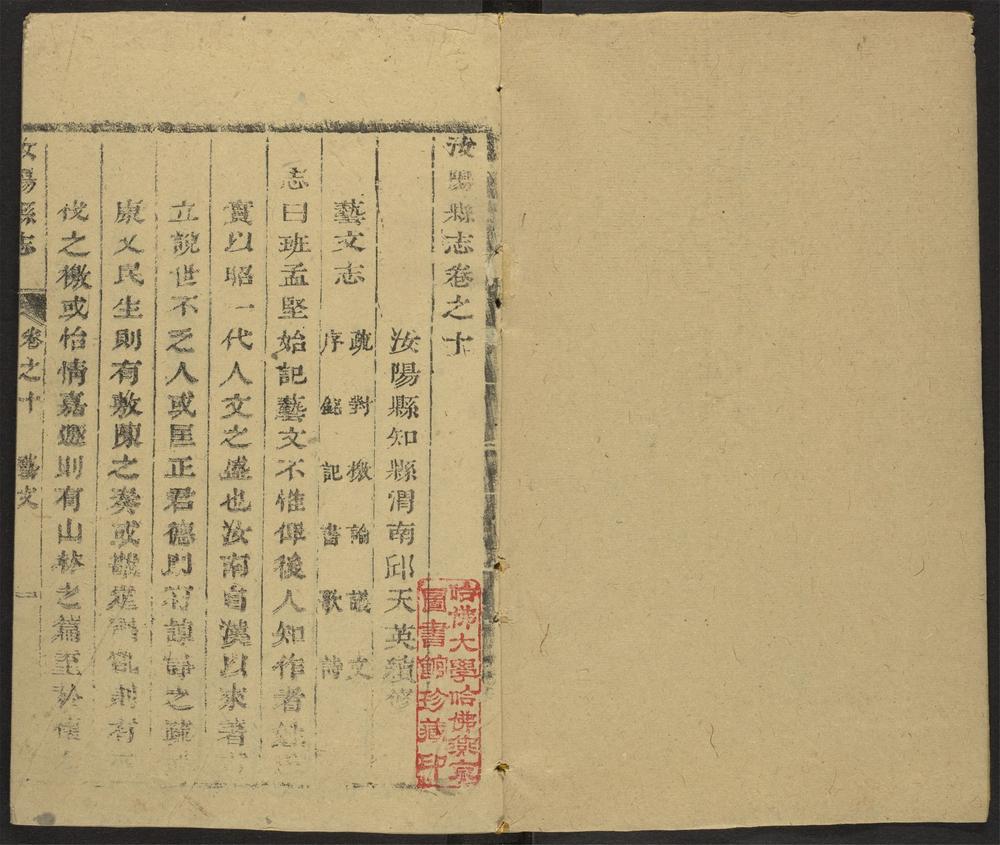 汝陽縣志卷之十
汝陽縣知縣渭南邱天英續修
藝文志
疏對檄論議文
序銘記書歌詩
志曰班孟堅始記藝文不惟俾後人知作者姓
實以昭一代人文之盛也汝南自漢以來著
立說世不乏人或匡正君德則有諫諍之疏
康乂民生則有敷陳之奏或戡定禍亂則有
伐之檄或怡情嘉遯則有山林之篇至於懷
汝陽縣志
卷之十
藝文
一
哈佛大學哈佛燕京
圖書館珍藏印